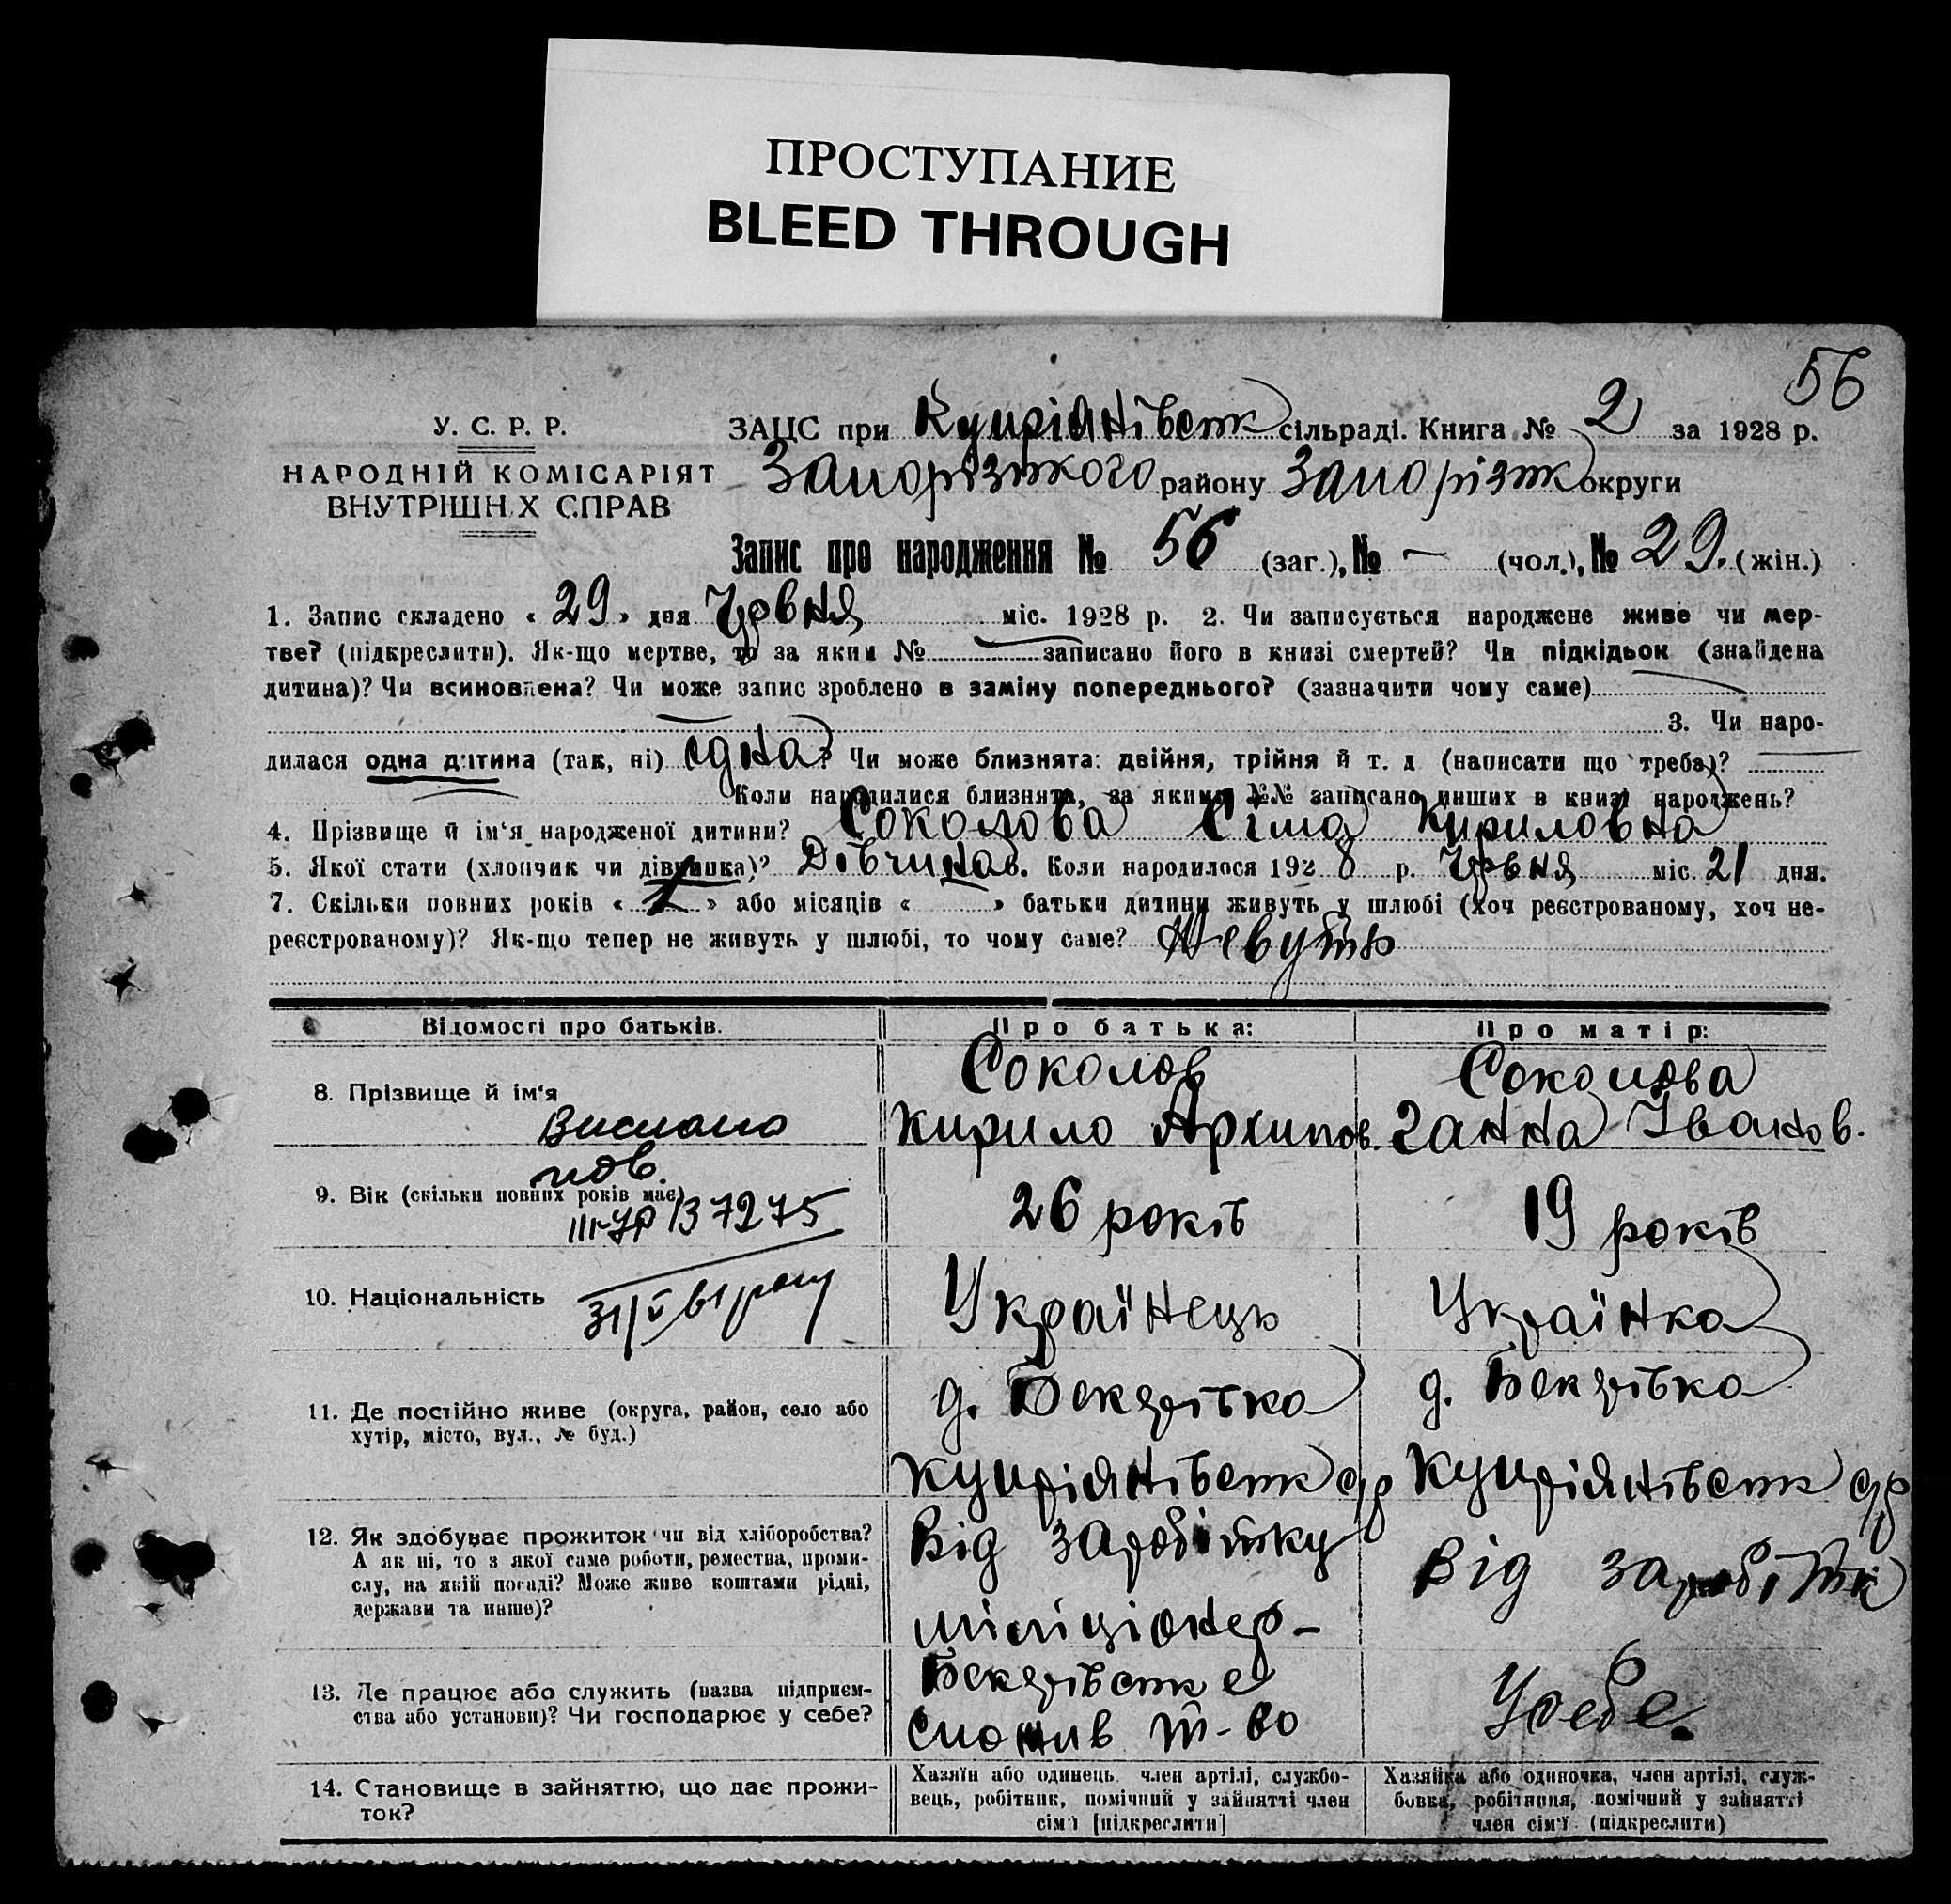 ПРОСТУПАНИЕ
BLEED THROUGH
56
У. С. Р. Р.
НАРОДНІЙ КОМІСАРІЯТ
ВНУТРІШН Х СПРАВ
ЗАЦС при Купріянівськ сільраді. Книга № 2 за 1928 р.
Запорізького району Запорізьк округи
Запис про народження № 56 (заг.), № — (чол.), № 29. (жін.)
1. Запис складено « 29 » дня Червня міс. 1928 р. 2. Чи записується народжене живе чи мер-
тве? (підкреслити). Як-що мертве, то за яким № записано його в книзі смертей? Чи підкідьок (знайдена
дитина)? Чи всиновлена? Чи може запис зроблено в заміну попереднього? (зазначити чому саме)
3. Чи наро-
дилася одна дитина (так, ні) една? Чи може близнята: двійня, трійня й т. д (написати що треба)?
Коли народилися близнята, за якими №№ записано инших в книзі народжень?
4. Прізвище й ім'я народженої дитини? Соколова Сіма Кириловна
5. Якої стати (хлопчик чи дівчинка)? Дівчина 6. Коли народилося 1928 р. Червня міс. 21 дня.
7. Скільки повних років « » або місяців « » батьки дитини живуть у шлюбі (хоч реєстрованому, хоч не-
реєстрованому)? Як-що тепер не живуть у шлюбі, то чому саме? Жевуть
Відомості про батьків. Про батька: Про матір:
8. Прізвище й ім'я
Соколов
Кирило Архипов.
Соколова
Ганна Іванов.
Выслано
пов.
9. Вік (скільки повних років має)
III-УР 137275
26 років
19 років
10. Національність
31/V 61 року
Українець
Українка
11. Де постійно живе (округа, район, село або
хутір, місто, вул., № буд.)
д.
Купріянівськ с/р
д.
Купріянівськ с/р
12. Як здобуває прожиток чи від хліборобства?
А як ні, то з якої саме роботи, ремества, проми-
слу, на якій посаді? Може живе коштами рідні,
держави та инше)?
Від заробітку
міліціонер-
Від заробітк
13. Де працює або служить (назва підприєм-
ства або установи)? Чи господарює у себе?
Спожив т-во
Усебе.
14. Становище в зайняттю, що дає прожи-
ток?
Хазяїн або одинець член артілі, службо-
вець, робітник, помічний у зайнятті член
сім'ї [підкреслити]
Хазяйка або одиночка, член артілі, служ-
бовка, робітниця, помічний у зайнятті
член сім'ї (підкреслити)